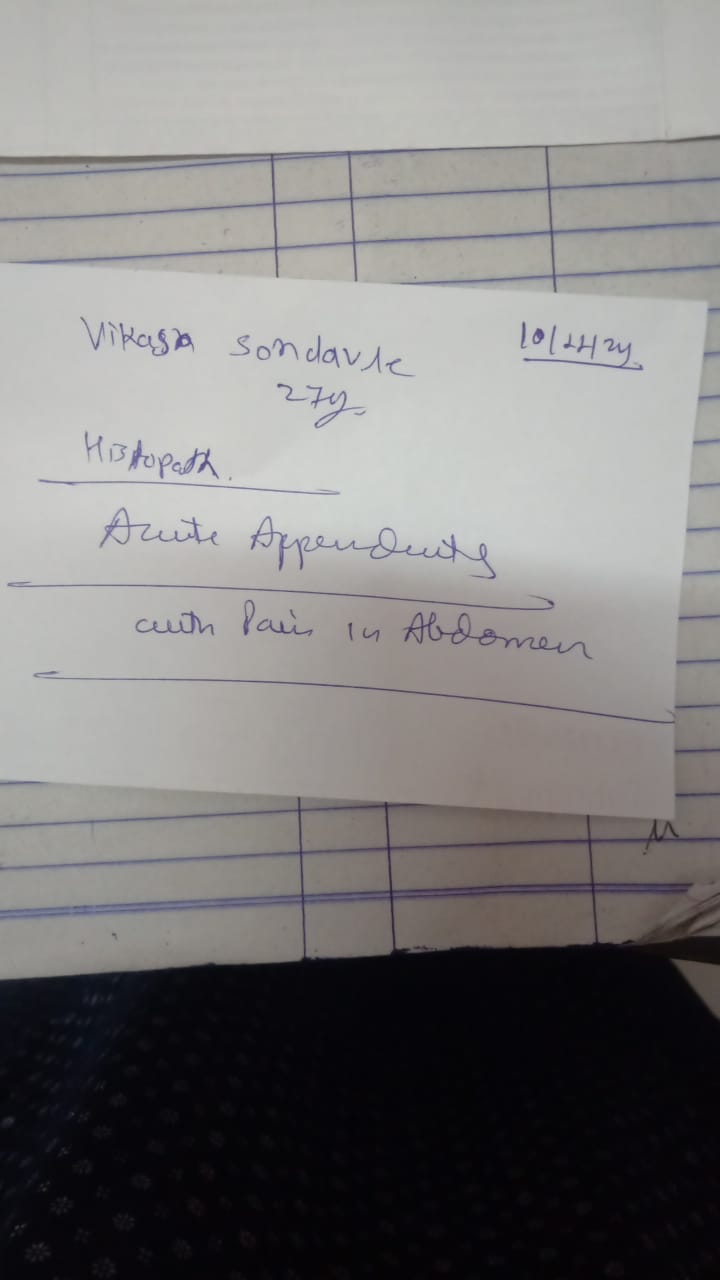 Vikas Sondavle
27y.
Histopath.
Acute Appendicitis
with Pain in Abdomen